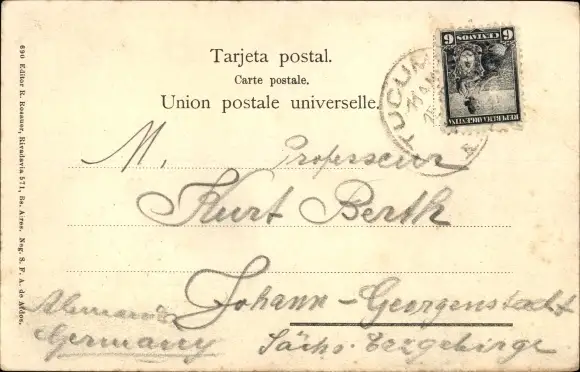 Tarjeta postal.
Carte postale.
Union postale universelle.
690 Editor R. Rosauer, Rivadavia 571, Bs. Aires. Neg. S. F. A. de Afdos.
TUCUM
6 CENTAVOS 6
REPUBLICA ARGENTINA
M. Professeur
Kurt Berth
Johann-Georgenstadt
Alemania
Germany Sächs. Erzgebirge